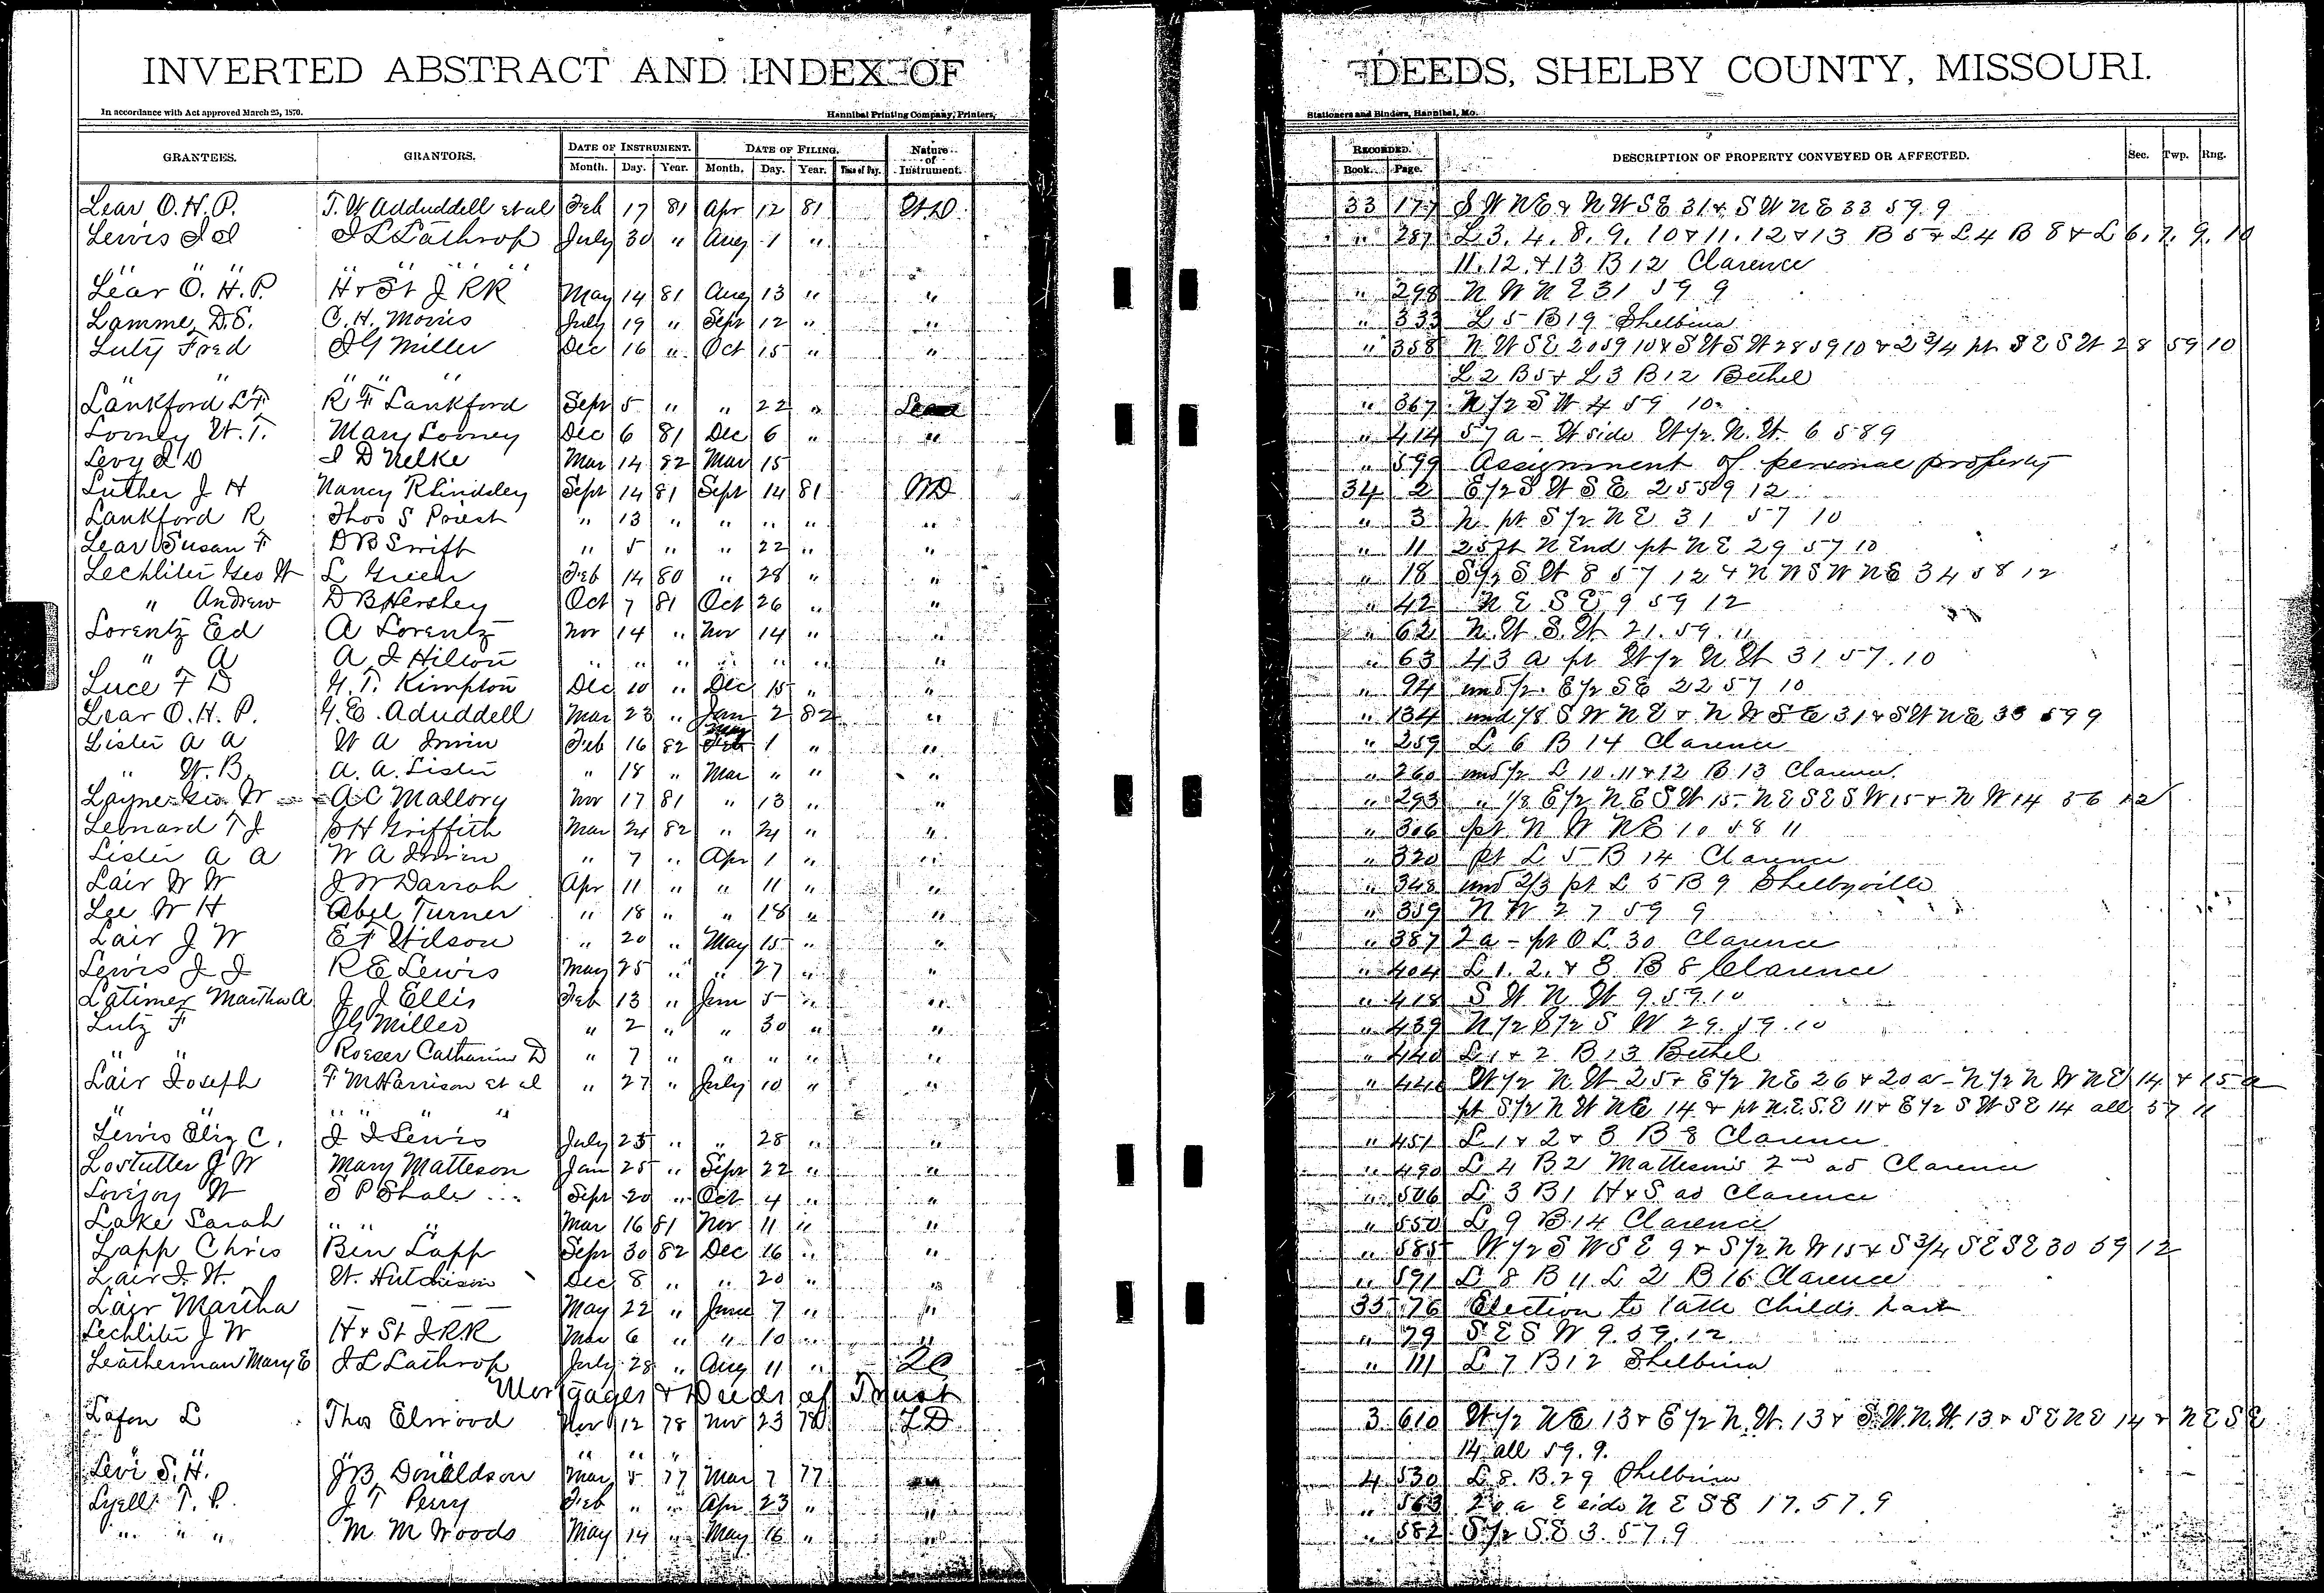 INVERTED ABSTRACT AND INDEX OF DEEDS, SHELBY COUNTY, MISSOURI.
In accordance with Act approved March 25, 1870. Hannibal Printing Company, Printers, Stationers and Binders, Hannibal, Mo.
GRANTEES. GRANTORS. DATE OF INSTRUMENT. DATE OF FILING. Nature of Instrument. RECORDED. DESCRIPTION OF PROPERTY CONVEYED OR AFFECTED. Sec. Twp. Rng.
Month. Day. Year. Month. Day. Year. Time of Day. Book. Page.
Lear O.H.P. T. W Adduddell et al Feb 17 81 Apr 12 81 WD 33 177 S W NE & N W S E 31 & S W N E 33 59. 9
Lewis J J J L Lathrop July 30 " Aug 1 " " 287 L 3. 4. 8. 9. 10 & 11. 12 & 13 B 5 & L 4 B 8 & L 6. 7. 9. 10
" " " " " " 11. 12. & 13 B 12 Clarence
Lear O. H. P. H & St J RR May 14 81 Aug 13 " " " 298 N W N E 31 59 9
Lamme, D.S. C. H. Morris July 19 " Sept 12 " " " 333 L 5 B 19 Shelbina
Lutz Fred J G Miller Dec 16 " Oct 15 " " " 358 N W S E 20 59 10 & S W S W 28 59 10 & 2 3/4 pt S E S W 28 59 10
" " " " " L 2 B 5 & L 3 B 12 Bethel
Lankford L F R F Lankford Sept 5 " " 22 " " 367 N 1/2 S W 4 59 10
Looney W. T. Mary Looney Dec 6 81 Dec 6 " " " 414 57 a - W side W 1/2 N. W. 6 58 9
Levy I D I D Nelke Mar 14 82 Mar 15 " 599 Assignment of personal property
Luther J H Nancy R Lindsley Sept 14 81 Sept 14 81 WD 34 2 E 1/2 S W S E 25 59 12
Lankford R Thos S Priest " 13 " " " " " " 3 N pt S 1/2 N E 31 57 10
Lear Susan F D B Swift " 5 " " 22 " " " 11 25 ft N End pt N E 29 57 10
Lechliter Geo W L Green Feb 14 80 " 28 " " " 18 S 1/2 S W 8 57 12 & N W S W N E 34 58 12
" Andrew D B Hershey Oct 7 81 Oct 26 " " " 42 N E S E 9 59 12
Lorentz Ed A Lorentz Nov 14 " Nov 14 " " " 62 N. W. S. W 21. 59. 11
" A A J Hilton " " " " " " " " 63 43 a pt W 1/2 N W 31 57. 10
Luce F D G. T. Kimpton Dec 10 " Dec 15 " " " 94 und 1/2 E 1/2 S E 22 57 10
Lear O. H. P. G. E. Aduddell Mar 23 " Jan 2 82 " " 134 und 1/8 S W N E & N W S E 31 & S W N E 33 59 9
Lister A A W A Irwin Feb 16 82 May 1 " " " 259 L 6 B 14 Clarence
" W. B. A. A. Lister " 18 " Mar " " " " 260 und 1/2 L 10. 11 & 12 B 13 Clarence.
Layne Geo W A C Mallory Nov 17 81 " 13 " " " 293 " 1/8 E 1/2 N E S W 15 N E S E S W 15 & N W 14 56 12
Leonard T J S H Griffith Mar 24 82 " 24 " " " 306 pt. N W NE 10 58 11
Lister A A W A Irwin " 7 " Apr 1 " " " 320 pt L 5 B 14 Clarence
Lair W W J W Darrah Apr 11 " " 11 " " " 348 und 2/3 pt L 5 B 9 Shelbyville
Lee W H Abel Turner " 18 " " 18 " " " 359 N W 27 59 9
Lair J W E F Wilson " 20 " May 15 " " " 387 2 a - pt O L 30 Clarence
Lewis J J R E Lewis May 25 " " 27 " " " 404 L 1. 2. & 3 B 8 Clarence
Latimer Martha A J J Ellis Feb 13 " Jun 5 " " " 418 S W N W 9. 59. 10
Lutz F J G Miller " 2 " " 30 " " " 439 N 1/2 S 1/2 S W 29. 59. 10
" " Roeser Catharine D " 7 " " " " " " 440 L 1 & 2 B 13 Bethel
Lair Joseph F M Harrison et al " 27 " July 10 " " " 446 W 1/2 N. W 25 & E 1/2 NE 26 & 20 a - N 1/2 N W NE 14 & 15 a
" " " " " " pt S 1/2 N W N E 14 & pt N. E. S. E 11 & E 1/2 S W S E 14 all 57 11
Lewis Eliz C. J J Lewis July 25 " " 28 " " " 451 L 1 & 2 & 3 B 8 Clarence
Lostutter J W Mary Matteson Jan 25 " Sept 22 " " " 490 L 4 B 2 Matteson's 2nd ad Clarence
Lovejoy W S P Shale Sept 20 " Oct 4 " " " 506 L 3 B 1 H & S ad Clarence
Lake Sarah " " " Mar 16 81 Nov 11 " " " 550 L 9 B 14 Clarence
Lapp Chris Ben Lapp Sept 30 82 Dec 16 " " " 585 W 1/2 S W S E 9 & S 1/2 N W 15 & S 3/4 S E S E 30 59 12
Lair J. W. W. Hutchison Dec 8 " " 20 " " " 591 L 8 B 11 L 2 B 16 Clarence
Lair Martha — — — — May 22 " June 7 " " 35 76 Election to take childs part
Lechliter J W H & St J R R Mar 6 " " 10 " " " 79 S E S W 9. 59. 12
Leatherman Mary E J L Lathrop July 28 " Aug 11 " QC " 111 L 7 B 12 Shelbina
Mortgages & Deeds of Trust
Lafon L Thos Elwood Nov 12 78 Nov 23 78 TD 3 610 W 1/2 N E 13 & E 1/2 N. W. 13 & S. W. N. W 13 & S E N E 14 & N E S E
" " " " " 14 all 59. 9.
Levi S. H. J B Donaldson Mar 5 77 Mar 7 77 " 4 530 L 8. B. 29 Shelbina
Lyell T. P. J T Perry Feb " " Apr 23 " " " 563 20 a E side N E S E 17. 57. 9
" " " M M Woods May 14 " May 16 " " " 582 S 1/2 S. E 3. 57. 9